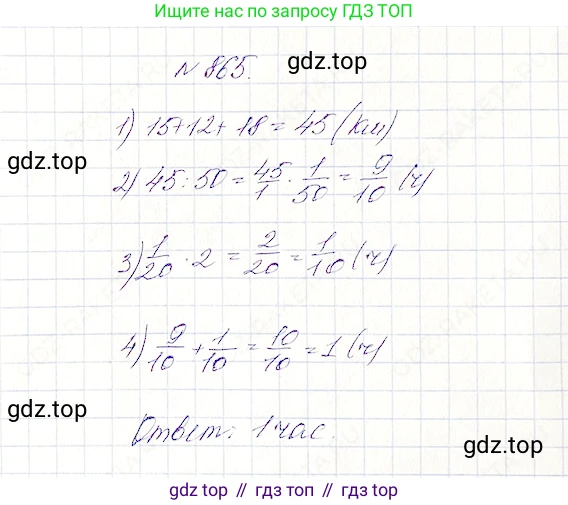 Ищите нас по запросу ГДЗ ТОП
№ 865.
gdz.top
1) 15+12+18=45 (км)
gdz.top
2) 45:50 = 45/1 · 1/50 = 9/10 (ч)
3) 1/20 · 2 = 2/20 = 1/10 (ч)
4) 9/10 + 1/10 = 10/10 = 1 (ч)
gdz.top
Ответ: 1 час.
gdz.top
gdz top // гдз топ // gdz top